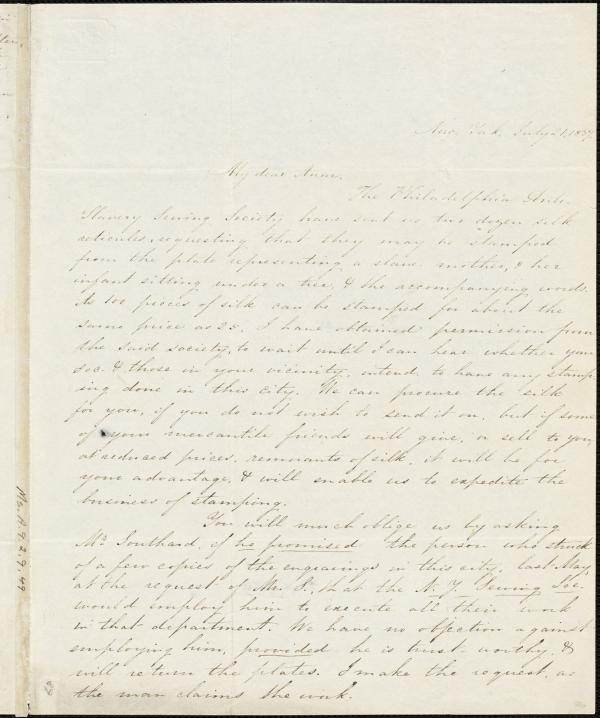 New York, July 21, 1837
My dear Anne,
The Philadelphia Anti-
Slavery Sewing Society have sent us two dozen silk
reticules, requesting that they may be stamped
from the plate representing a slave mother, & her
infant sitting under a tree, & the accompanying words.
As 100 pieces of silk can be stamped for about the
same price as 25, I have obtained permission from
the said society, to wait until I can hear whether your
soc. & those in your vicinity, intend to have any stamp-
ing done in this city. We can procure the silk
for you, if you do not wish to send it on, but if some
of your mercantile friends will give, or sell to you,
at reduced prices, remnants of silk, it will be for
your advantage, & will enable us to expedite the
business of stamping.
You will much oblige us by asking
Mr Southard, if he promised the person who struck
of a few copies of the engravings in this city, last May,
at the request of Mr. S., that the N. Y. Sewing Soc.
would employ him to execute all their work
in that department. We have no objection against
employing him, provided he is trust-worthy, &
will return the plates. I make the request, as
the man claims the work.
Ms.A.9.2.9.49